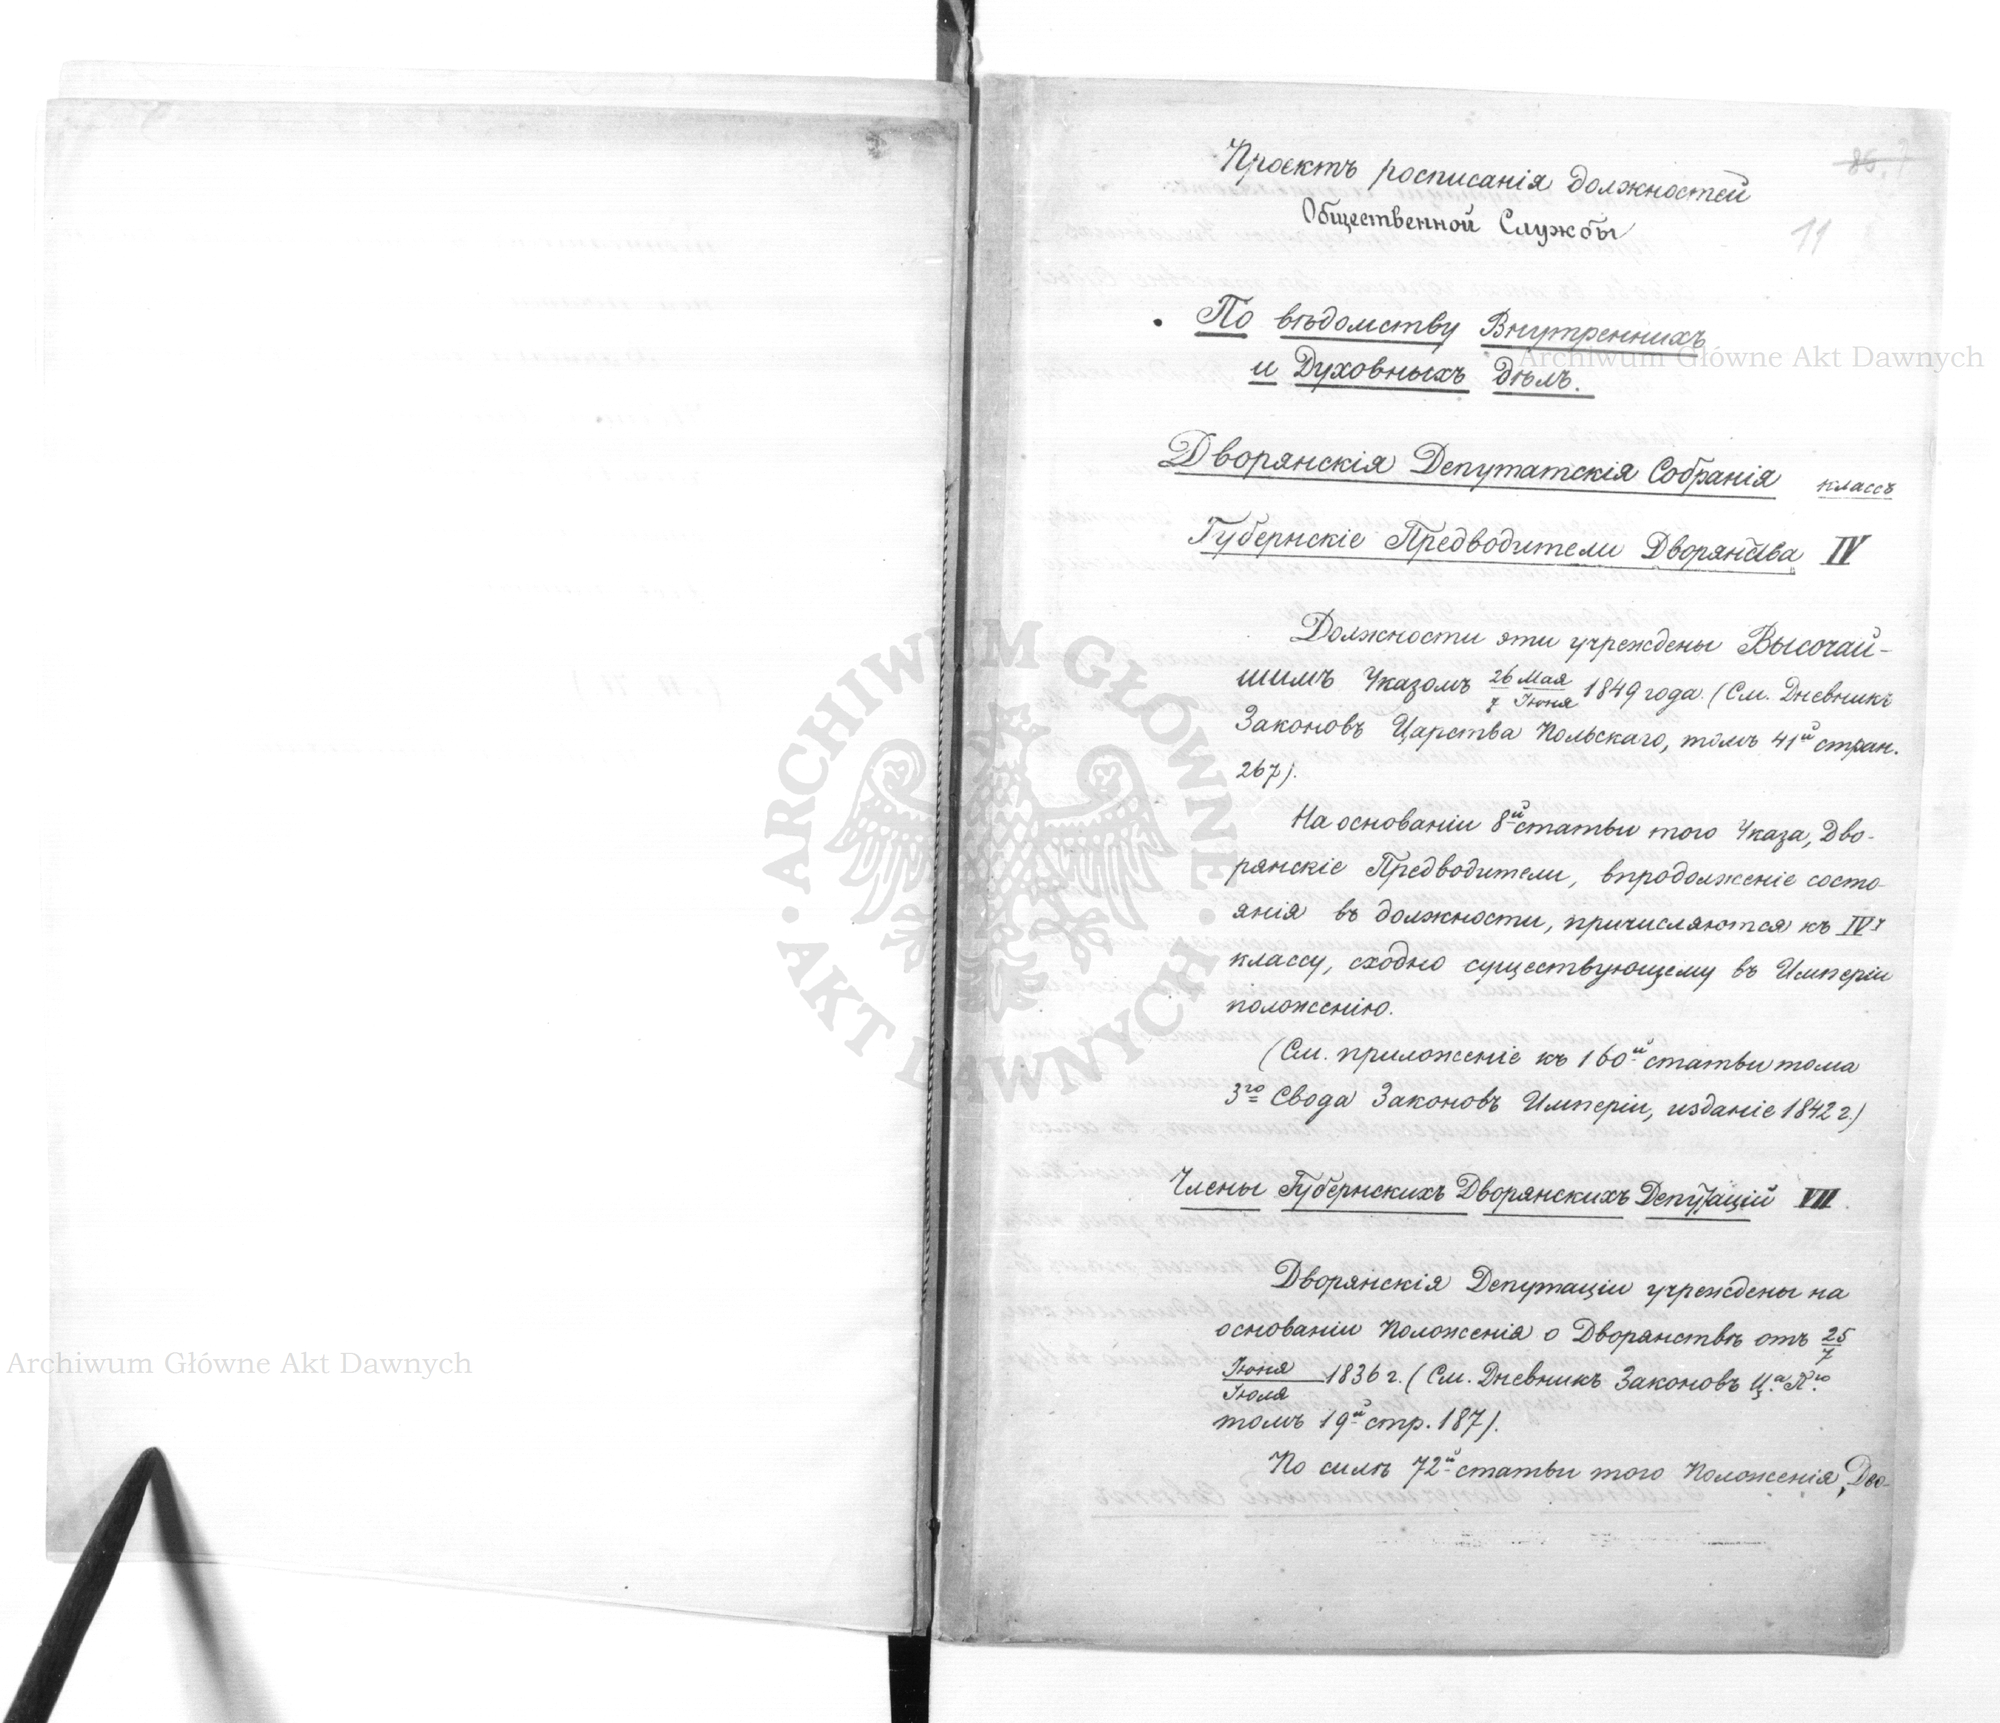 86.
11
Проектъ росписанія должностей
Общественной Службы
По вѣдомству Внутреннихъ
и Духовныхъ дѣлъ.
Дворянскія Депутатскія Собранія классъ
Губернскіе Предводители Дворянства IV
Должности эти учреждены Высочай-
шимъ Указомъ 26 Мая / 7 Іюня 1849 года. (См. Дневникъ
Законовъ Царства Польскаго, томъ 41й стран.
267).
На основаніи 8й статьи того Указа, Дво-
рянскіе Предводители, впродолженіе состо-
янія въ должности, причисляются къ IVу
классу, сходно существующему въ Имперіи
положенію.
(См. приложеніе къ 160й статьи тома
3го Свода Законовъ Имперіи, изданіе 1842 г.)
Члены Губернскихъ Дворянскихъ Депутацій VII
Дворянскія Депутаціи учреждены на
основаніи Положенія о Дворянствѣ отъ 25/7
Іюня / Іюля 1836 г. (См. Дневникъ Законовъ Ц.а П.го
томъ 19й стр. 187).
По силѣ 72й статьи того Положенія, Дво-
Archiwum Główne Akt Dawnych
Archiwum Główne Akt Dawnych
ARCHIWUM GŁÓWNE · AKT DAWNYCH ·